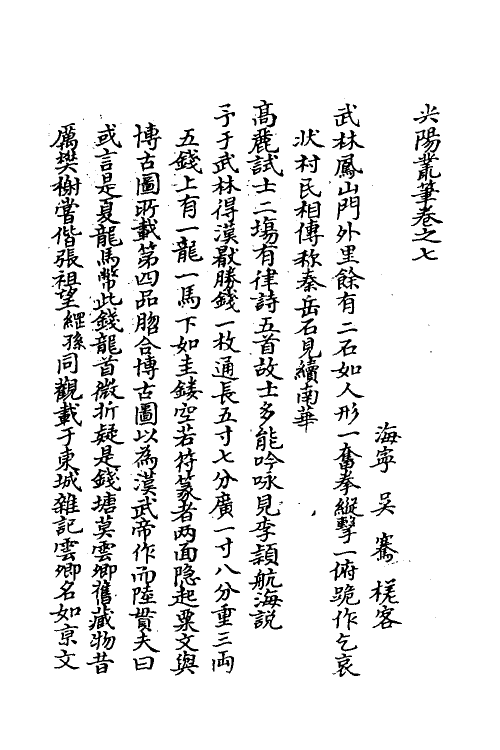 尖陽叢筆卷之七
海寧 吳騫 槎客
武林鳳山門外里餘有二石如人形一奮拳縱擊一俯跪作乞哀
狀村民相傳称秦岳石見續南華
高麗試士二場有律詩五首故士多能吟咏見李頴航海説
予于武林得漢厭勝錢一枚通長五寸七分廣一寸八分重三両
五錢上有一龍一馬下如圭鏤空若符篆者两面隐起粟文與
博古圖所載第四品脗合博古圖以為漢武帝作而陸貫夫曰
或言是夏龍馬幣此錢龍首微折疑是錢塘莫雲卿舊藏物昔
厲樊榭嘗偕張祖望繧孫同觀載于東城雜記雲卿名如京文